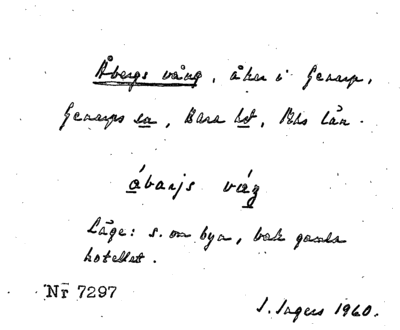 Åbergs vång, åker i Genarp,
Genarps sn, Bara hd, Mlhs län.
ábarjs váŋ
Läge: s. om byn, bak gamla
hotellet.
Nr 7297
I. Ingers 1960.